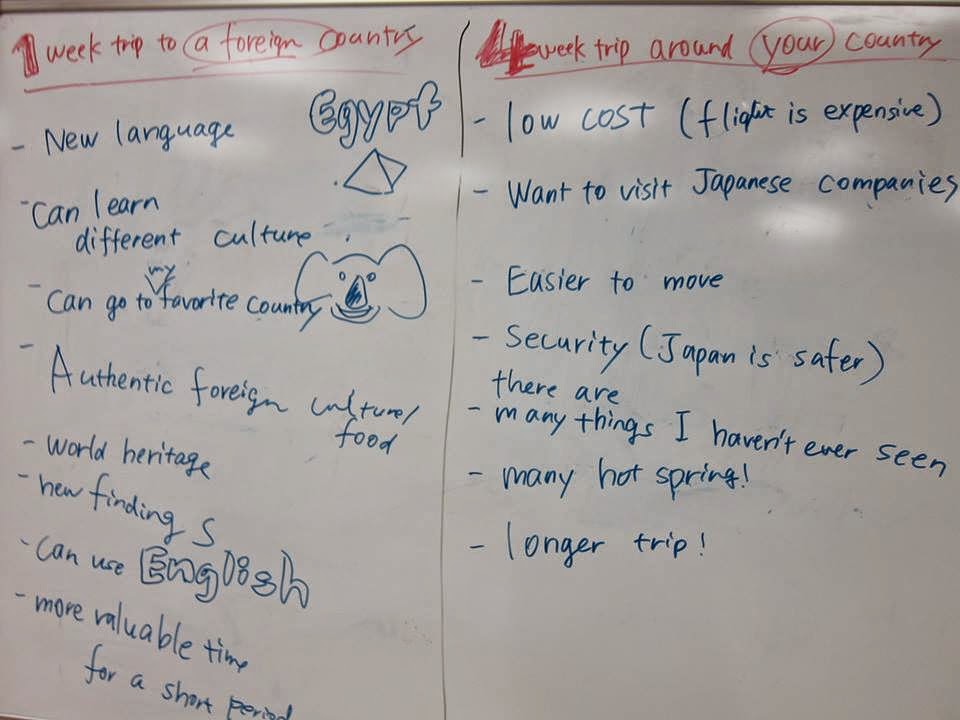 1 week trip to a foreign country
- New language
Egypt
- Can learn
different culture
- Can go to my favorite country
- Authentic foreign culture/
food
- world heritage
- new findings
- Can use English
- more valuable time
for a short period
4 week trip around your country
- low cost (flight is expensive)
- Want to visit Japanese companies
- Easier to move
- Security (Japan is safer)
there are
- many things I haven't ever seen
- many hot spring!
- longer trip!